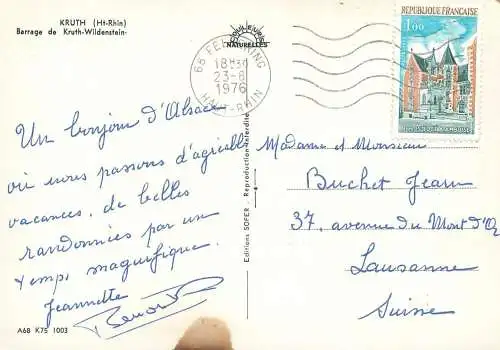 KRUTH (Ht-Rhin)
Barrage de Kruth-Wildenstein-
COULEURS
NATURELLES
68 FELLERING
18H30
23-8
1976
HAUT-RHIN
REPUBLIQUE FRANÇAISE
1,00
Un bonjour d'Alsace
où nous passons d'agréables
vacances, de belles
randonnées par un
temps magnifique.
Jeannette
Editions SOFER - Reproduction interdite
Madame et Monsieur
Buchet Jean
37, avenue du Mont d'Or
Lausanne
Suisse
A68 K75 1003